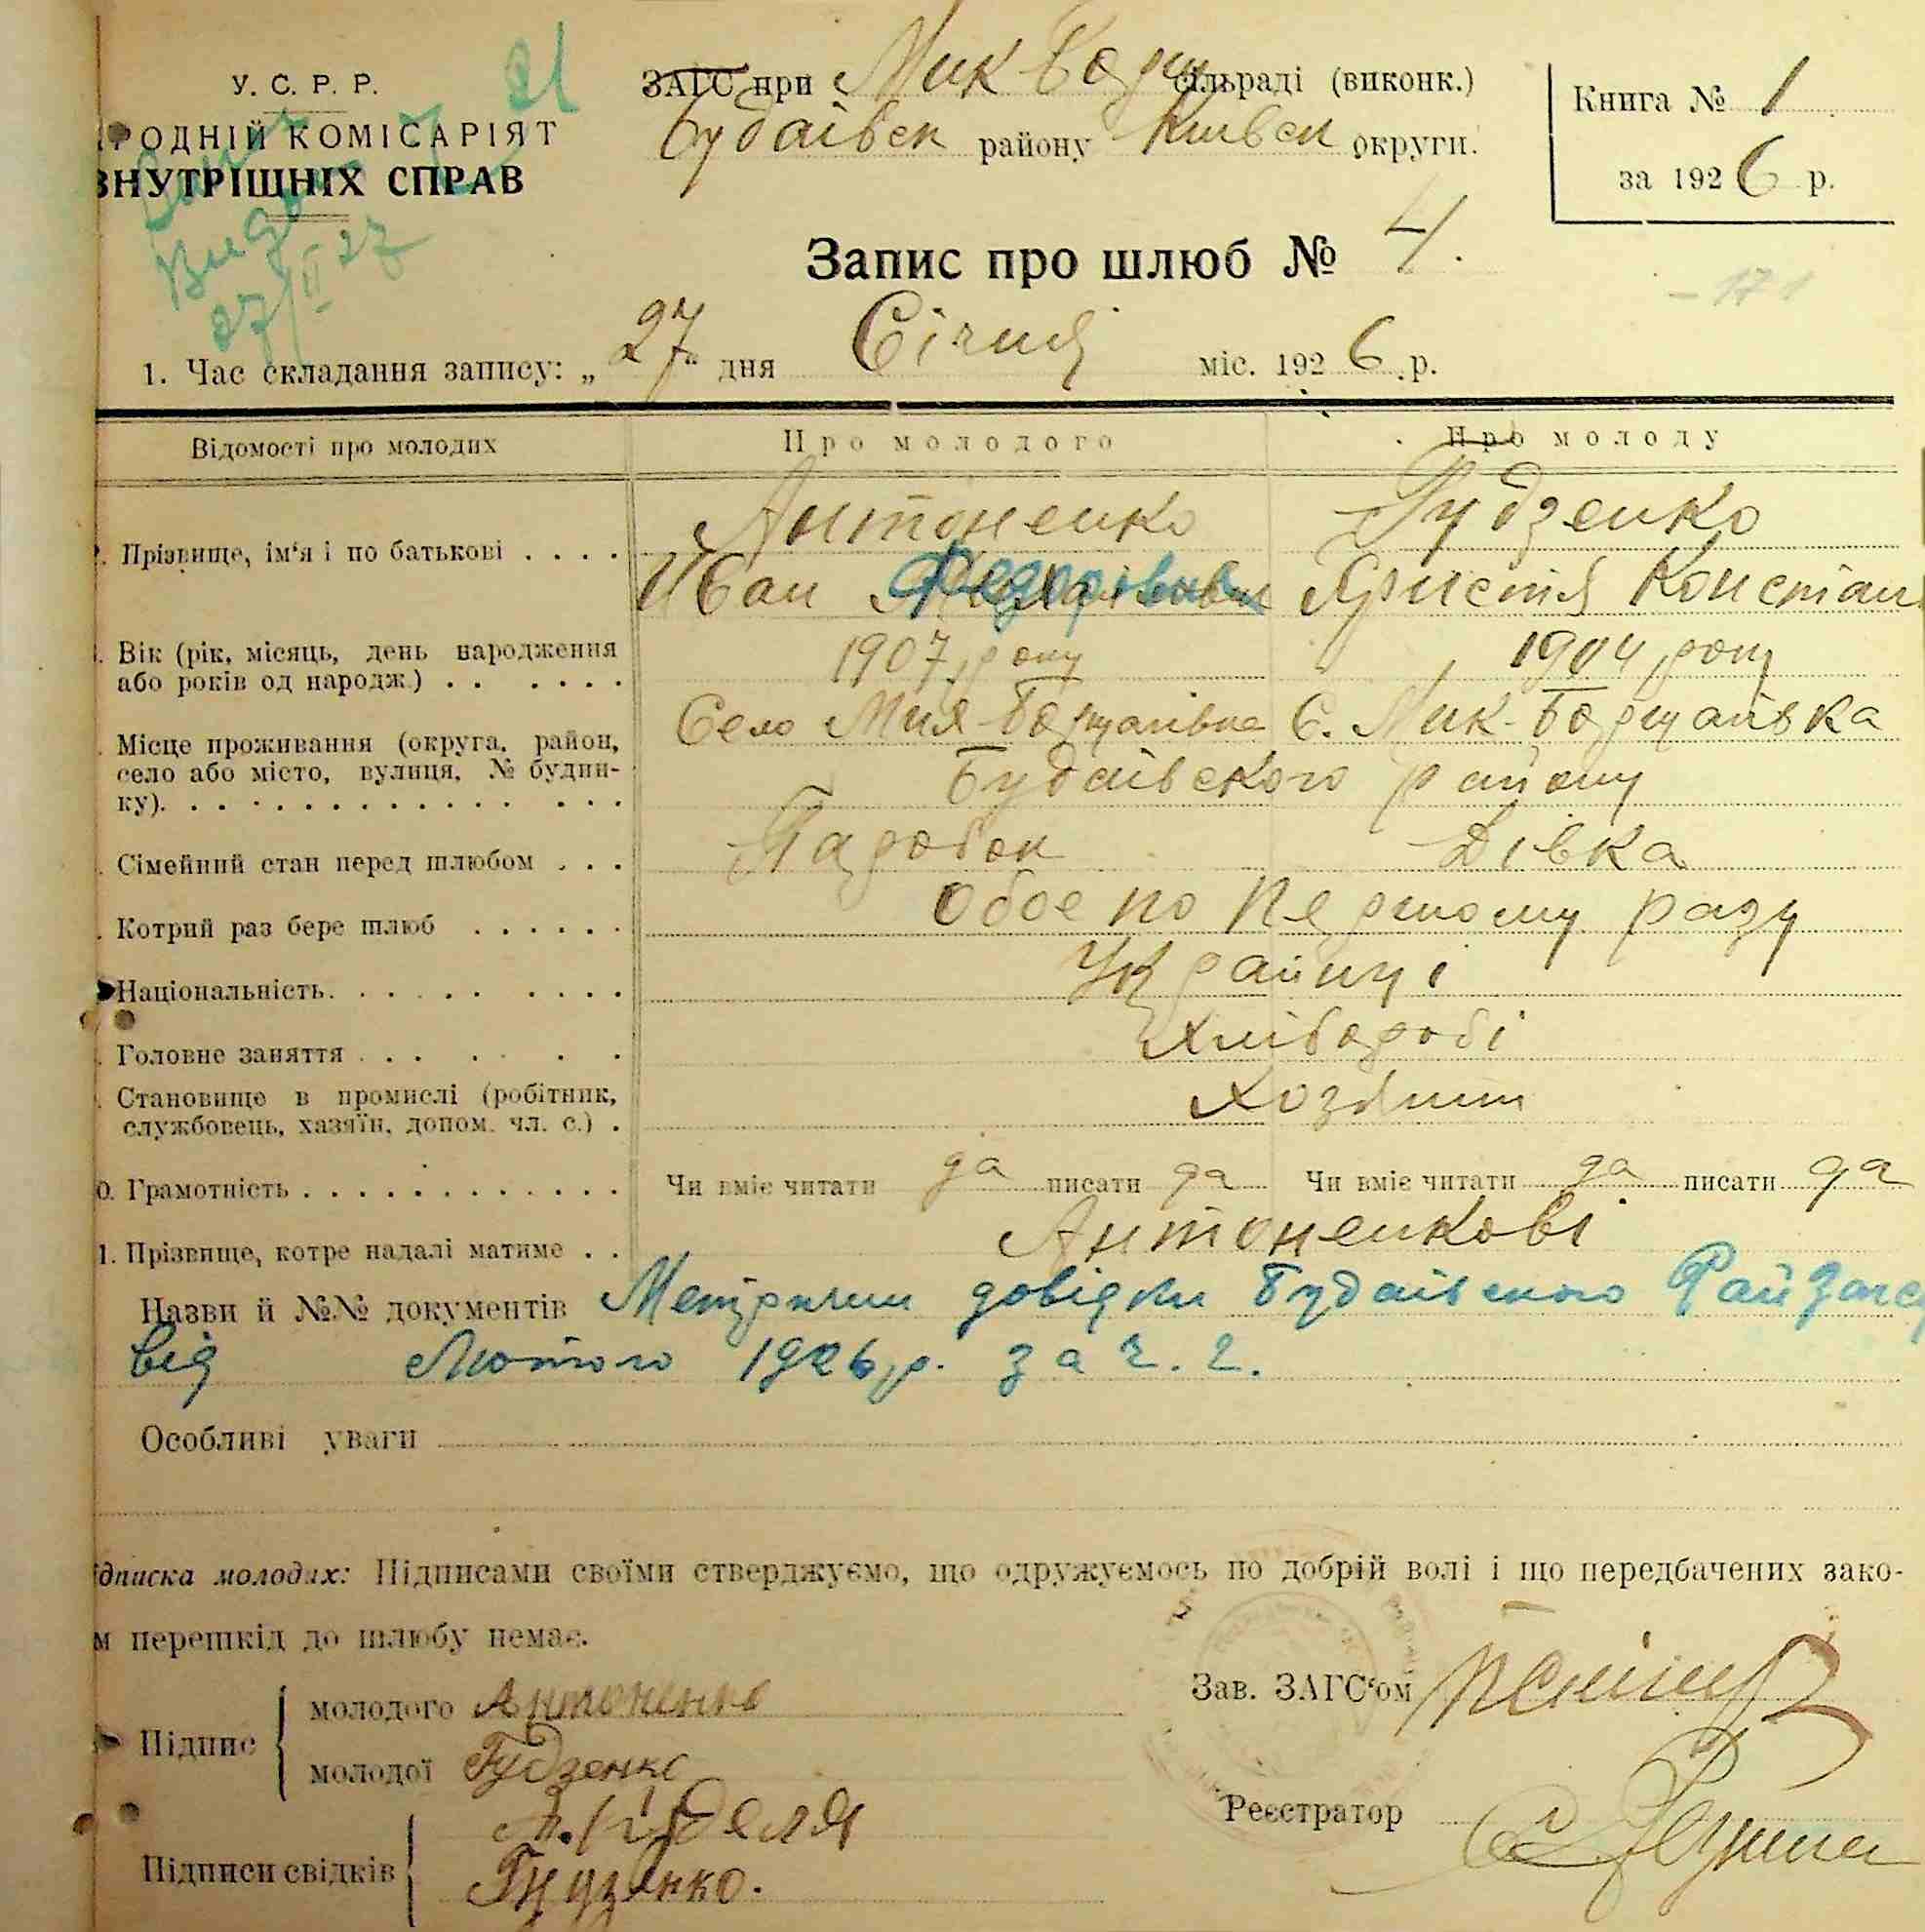 У. С. Р. Р.
РОДНІЙ КОМІСАРІЯТ
ВНУТРІШНІХ СПРАВ
21
27/II 27
ЗАГС при Мик Борщ сільраді (виконк.)
Будаївськ району Київськ округи.
Книга № 1
за 1926 р.
Запис про шлюб № 4.
- 171
1. Час складання запису: „27" дня Січня міс. 1926 р.
Відомості про молодих
Про молодого
Про молоду
Прізвище, ім'я і по батькові . . . .
Антоненко
Гудзенко
Иван Федорівич
Христя Констан
Вік (рік, місяць, день народження
або років од народж.) . . . . . .
1907 року
1904 року
Місце проживання (округа, район,
село або місто, вулиця, № будин-
ку). . . . . . . . . . . . . . .
Село Мик-Борщагівка
С. Мик-Борщагівка
Будаївского району
Сімейний стан перед шлюбом . . .
Паробок
Дівка
Котрий раз бере шлюб . . . . . .
Обое по першому разу
Національність. . . . . . . . . .
Українці
Головне заняття . . . . . .
Хлібороби
Становище в промислі (робітник,
службовець, хазяїн, допом. чл. с.) .
0. Грамотність . . . . . . . . . . . . .
Чи вміє читати да писати да
Чи вміє читати да писати да
1. Прізвище, котре надалі матиме . .
Антоненкові
Назви й №№ документів Метричні довідки Будаївского Райзагсу
від Лютого 1926 р. за ч. 2.
Особливі уваги
ідписка молодих: Підписами своїми стверджуємо, що одружуємось по добрій волі і що передбачених зако-
м перешкід до шлюбу немає.
Підпис
молодого Антоненко
молодої Гудзенко
Зав. ЗАГС'ом
Реєстратор
Підписи свідків
Гудзенко.